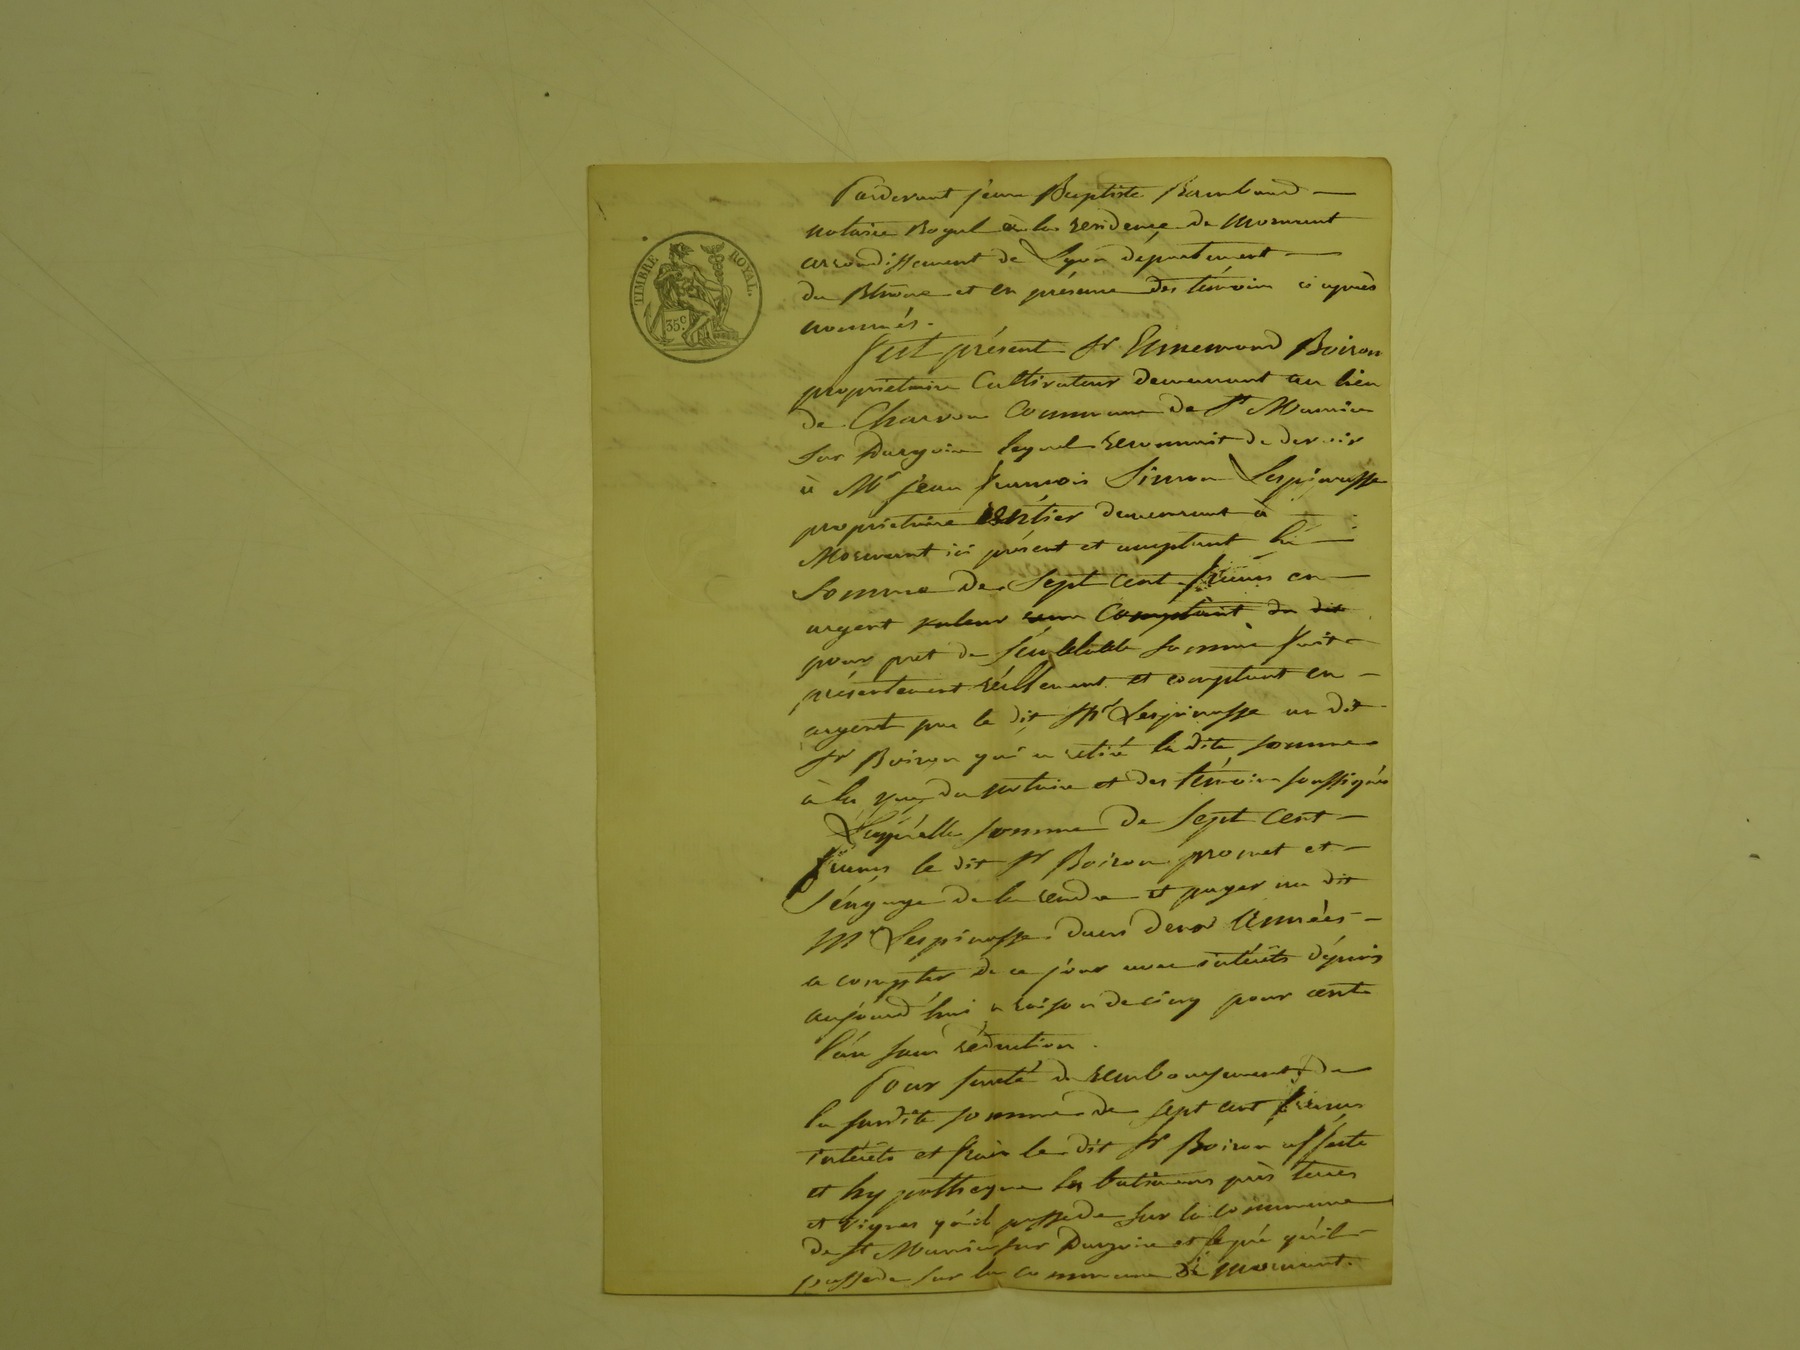 TIMBRE ROYAL.
35c.
Pardevant jean Baptiste Rambaud
notaire Royal à la residence de Mornant
arrondissement de Lyon département
du Rhône et en présence des témoins ci après
nommés.
fut présent Sr Ennemond Boiron
propriétaire Cultivateur demeurant au lieu
de Charvon Commune de St Maurice
sur Dargoire lequel reconnait de devoir
à Mr jean françois Simon Lespinasse
propriétaire rentier demeurant à
Mornant ici présent et acceptant la
somme de Sept cent francs en
argent valeur
pour pret de semblable somme fait
présentement réellement et comptant en
argent par le dit Mr Lespinasse au dit
Sr Boiron qui a retiré la dite somme
à la vue du notaire et des témoins soussignés
Laquelle somme de sept cent
francs le dit Sr Boiron promet et
s'éngage de la rendre et payer au dit
Mr Lespinasse dans deux années
a compter de ce jour avec intérêts dépuis
aujourd'hui a raison de cinq pour cent
l'an sans réduction.
Pour sureté du remboursement de
la susdite somme de sept cent francs
intérêts et frais le dit Sr Boiron affecte
et hypotheque les batimens près terres
et vignes qu'il possede sur la commune
de St Maurice sur Dargoire et le pré qu'il
possede sur la commune de Mornant.